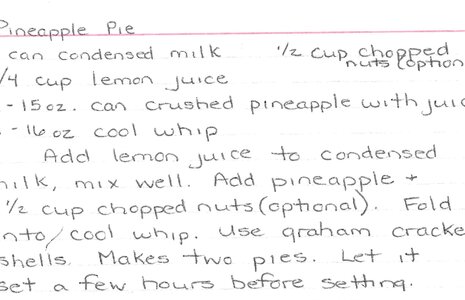 Pineapple Pie
can condensed milk 1/2 cup chopped nuts (option
/4 cup lemon juice
- 15 oz. can crushed pineapple with juic
- 16 oz cool whip
Add lemon juice to condensed
milk, mix well. Add pineapple +
1/2 cup chopped nuts (optional). Fold
into/cool whip. Use graham cracke
shells. Makes two pies. Let it
set a few hours before setting.